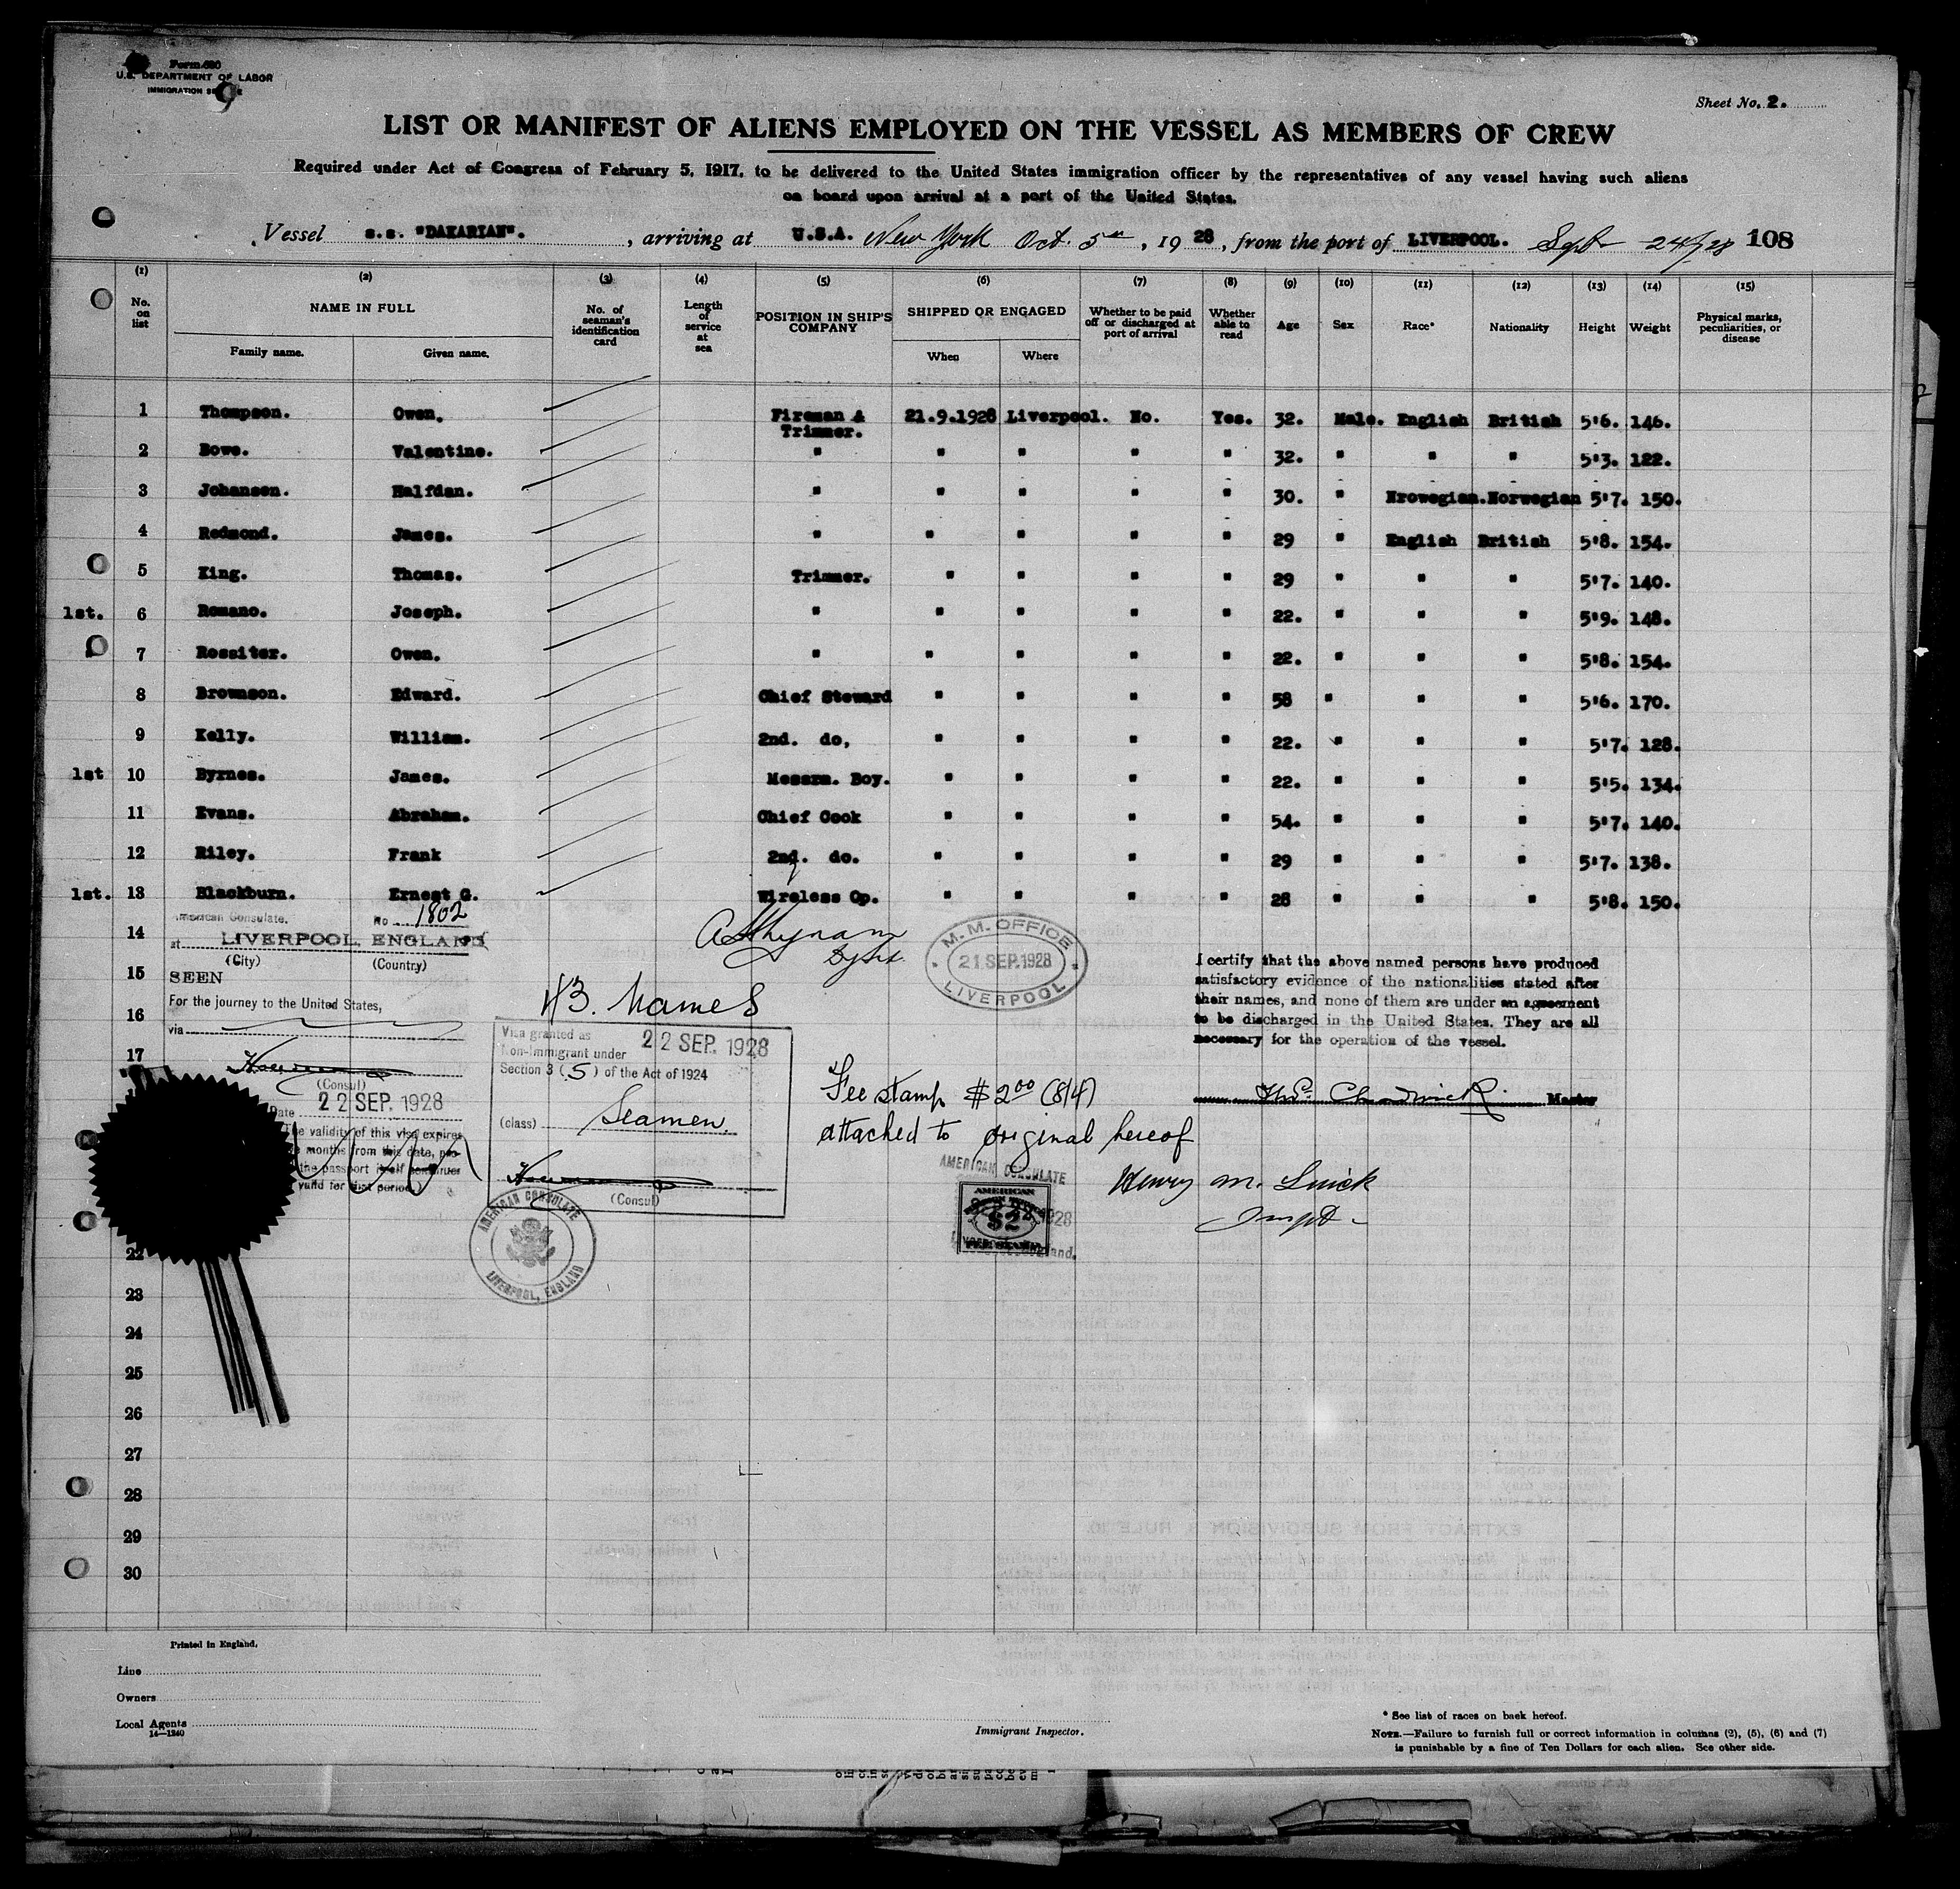 Form 680
U.S. DEPARTMENT OF LABOR
IMMIGRATION SERVICE
Sheet No. 2.
LIST OR MANIFEST OF ALIENS EMPLOYED ON THE VESSEL AS MEMBERS OF CREW
Required under Act of Congress of February 5, 1917, to be delivered to the United States immigration officer by the representatives of any vessel having such aliens
on board upon arrival at a port of the United States.
Vessel s.s. "DAKARIAN". , arriving at U.S.A. New York Oct. 5th , 19 28 , from the port of LIVERPOOL. Sept 24/28 108
(1) (2) (3) (4) (5) (6) (7) (8) (9) (10) (11) (12) (13) (14) (15)
No. on list NAME IN FULL No. of seaman's identification card Length of service at sea POSITION IN SHIP'S COMPANY SHIPPED OR ENGAGED Whether to be paid off or discharged at port of arrival Whether able to read Age Sex Race* Nationality Height Weight Physical marks, peculiarities, or disease
Family name. Given name. When Where
1 Thompson. Owen. Fireman & Trimmer. 21.9.1928 Liverpool. No. Yes. 32. Male. English British 5'6. 146.
2 Bowe. Valentine. " " " " " 32. " " " 5'3. 122.
3 Johansen. Halfdan. " " " " " 30. " Nrowegian. Norwegian 5'7. 150.
4 Redmond. James. " " " " " 29 " English British 5'8. 154.
5 King. Thomas. Trimmer. " " " " 29 " " " 5'7. 140.
1st. 6 Romano. Joseph. " " " " " 22. " " " 5'9. 148.
7 Rossiter. Owen. " " " " " 22. " " " 5'8. 154.
8 Brownson. Edward. Chief Steward " " " " 58 " " " 5'6. 170.
9 Kelly. William. 2nd. do, " " " " 22. " " " 5'7. 128.
1st 10 Byrnes. James. Messrm. Boy. " " " " 22. " " " 5'5. 134.
11 Evans. Abraham. Chief Cook " " " " 54. " " " 5'7. 140.
12 Riley. Frank 2nd. do. " " " " 29 " " " 5'7. 138.
1st. 13 Blackburn. Ernest G. Wireless Op. " " " " 28 " " " 5'8. 150.
American Consulate. No 1802
14
at LIVERPOOL, ENGLAND
(City) (Country)
15
SEEN
For the journey to the United States,
16
via
17
(Consul)
Date 22 SEP. 1928
The validity of this visa expires
months from this date, pro-
the passport itself continues
valid for that period.)
13. Names
Visa granted as
Non-Immigrant under 22 SEP. 1928
Section 3 (5) of the Act of 1924
(class) Seamen.
(Consul)
AMERICAN CONSULATE
LIVERPOOL, ENGLAND
M. M. OFFICE
21 SEP. 1928
LIVERPOOL
I certify that the above named persons have produced
satisfactory evidence of the nationalities stated after
their names, and none of them are under an agreement
to be discharged in the United States. They are all
necessary for the operation of the vessel.
Thos. Chadwick Master
Fee stamp $2.00 (8/4)
attached to original hereof
AMERICAN CONSULATE
AMERICAN
$2
FEE STAMP
Henry M.
22
23
24
25
26
27
28
29
30
Printed in England.
Line
Owners
Local Agents
14—1240
Immigrant Inspector.
* See list of races on back hereof.
NOTE.—Failure to furnish full or correct information in columns (2), (5), (6) and (7)
is punishable by a fine of Ten Dollars for each alien. See other side.